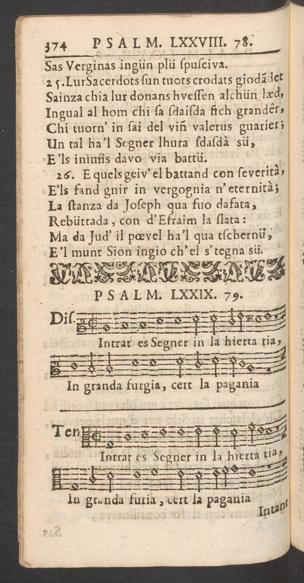 374 PSALM. LXXVIII. 78.
Sas Verginas ingün plü spusciva.
25. Lur Sacerdots sun tuots crodats giodà det
Sainza chia lur donans hvessen alchün læd,
Ingual al hom chi sa sdaisda fich grandêr,
Chi tuorn' in sai del vin valerus guarier;
Un tal ha'l Segner lhura sdasdà sü,
E'ls inimis davo via battü.
26. E quels geiv' el battand con severità,
E'ls fand gnir in vergognia n'eternità;
La stanza da Joseph qua fuo dafata,
Rebüttada, con d'Efraim la slata:
Ma da Jud' il pœvel ha'l qua tschernü,
E'l munt Sion ingio ch'el s'tegna sü.
PSALM. LXXIX. 79.
Dis.
Intrat es Segner in la hierta tia,
In granda furgia, cert la pagania
Ten
Intrat es Segner in la hierta tia,
In granda furia, cert la pagania
Intant